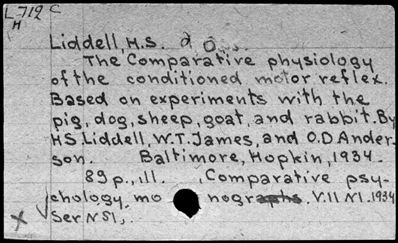 L-712 C
H
Liddell, H.S.
The Comparative physiology
of the conditioned motor reflex.
Based on experiments with the
pig, dog, sheep, goat, and rabbit. By
H S Liddell, W.T. James, and O.D. Ander-
son. Baltimore, Hopkin, 1934.
89 p., ill. , Comparative psy-
chology, mo nographs. V.11 N1. 1934
Ser N 51,.